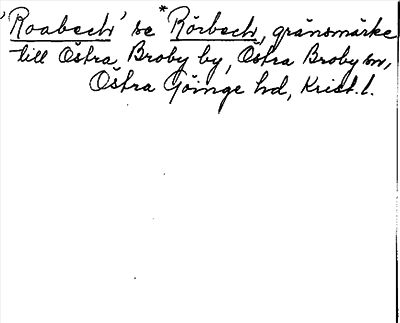 'Roabech' se *Rörbech, gränsmärke
till Östra Broby by, Östra Broby sn,
Östra Göinge hd, Krist. l.